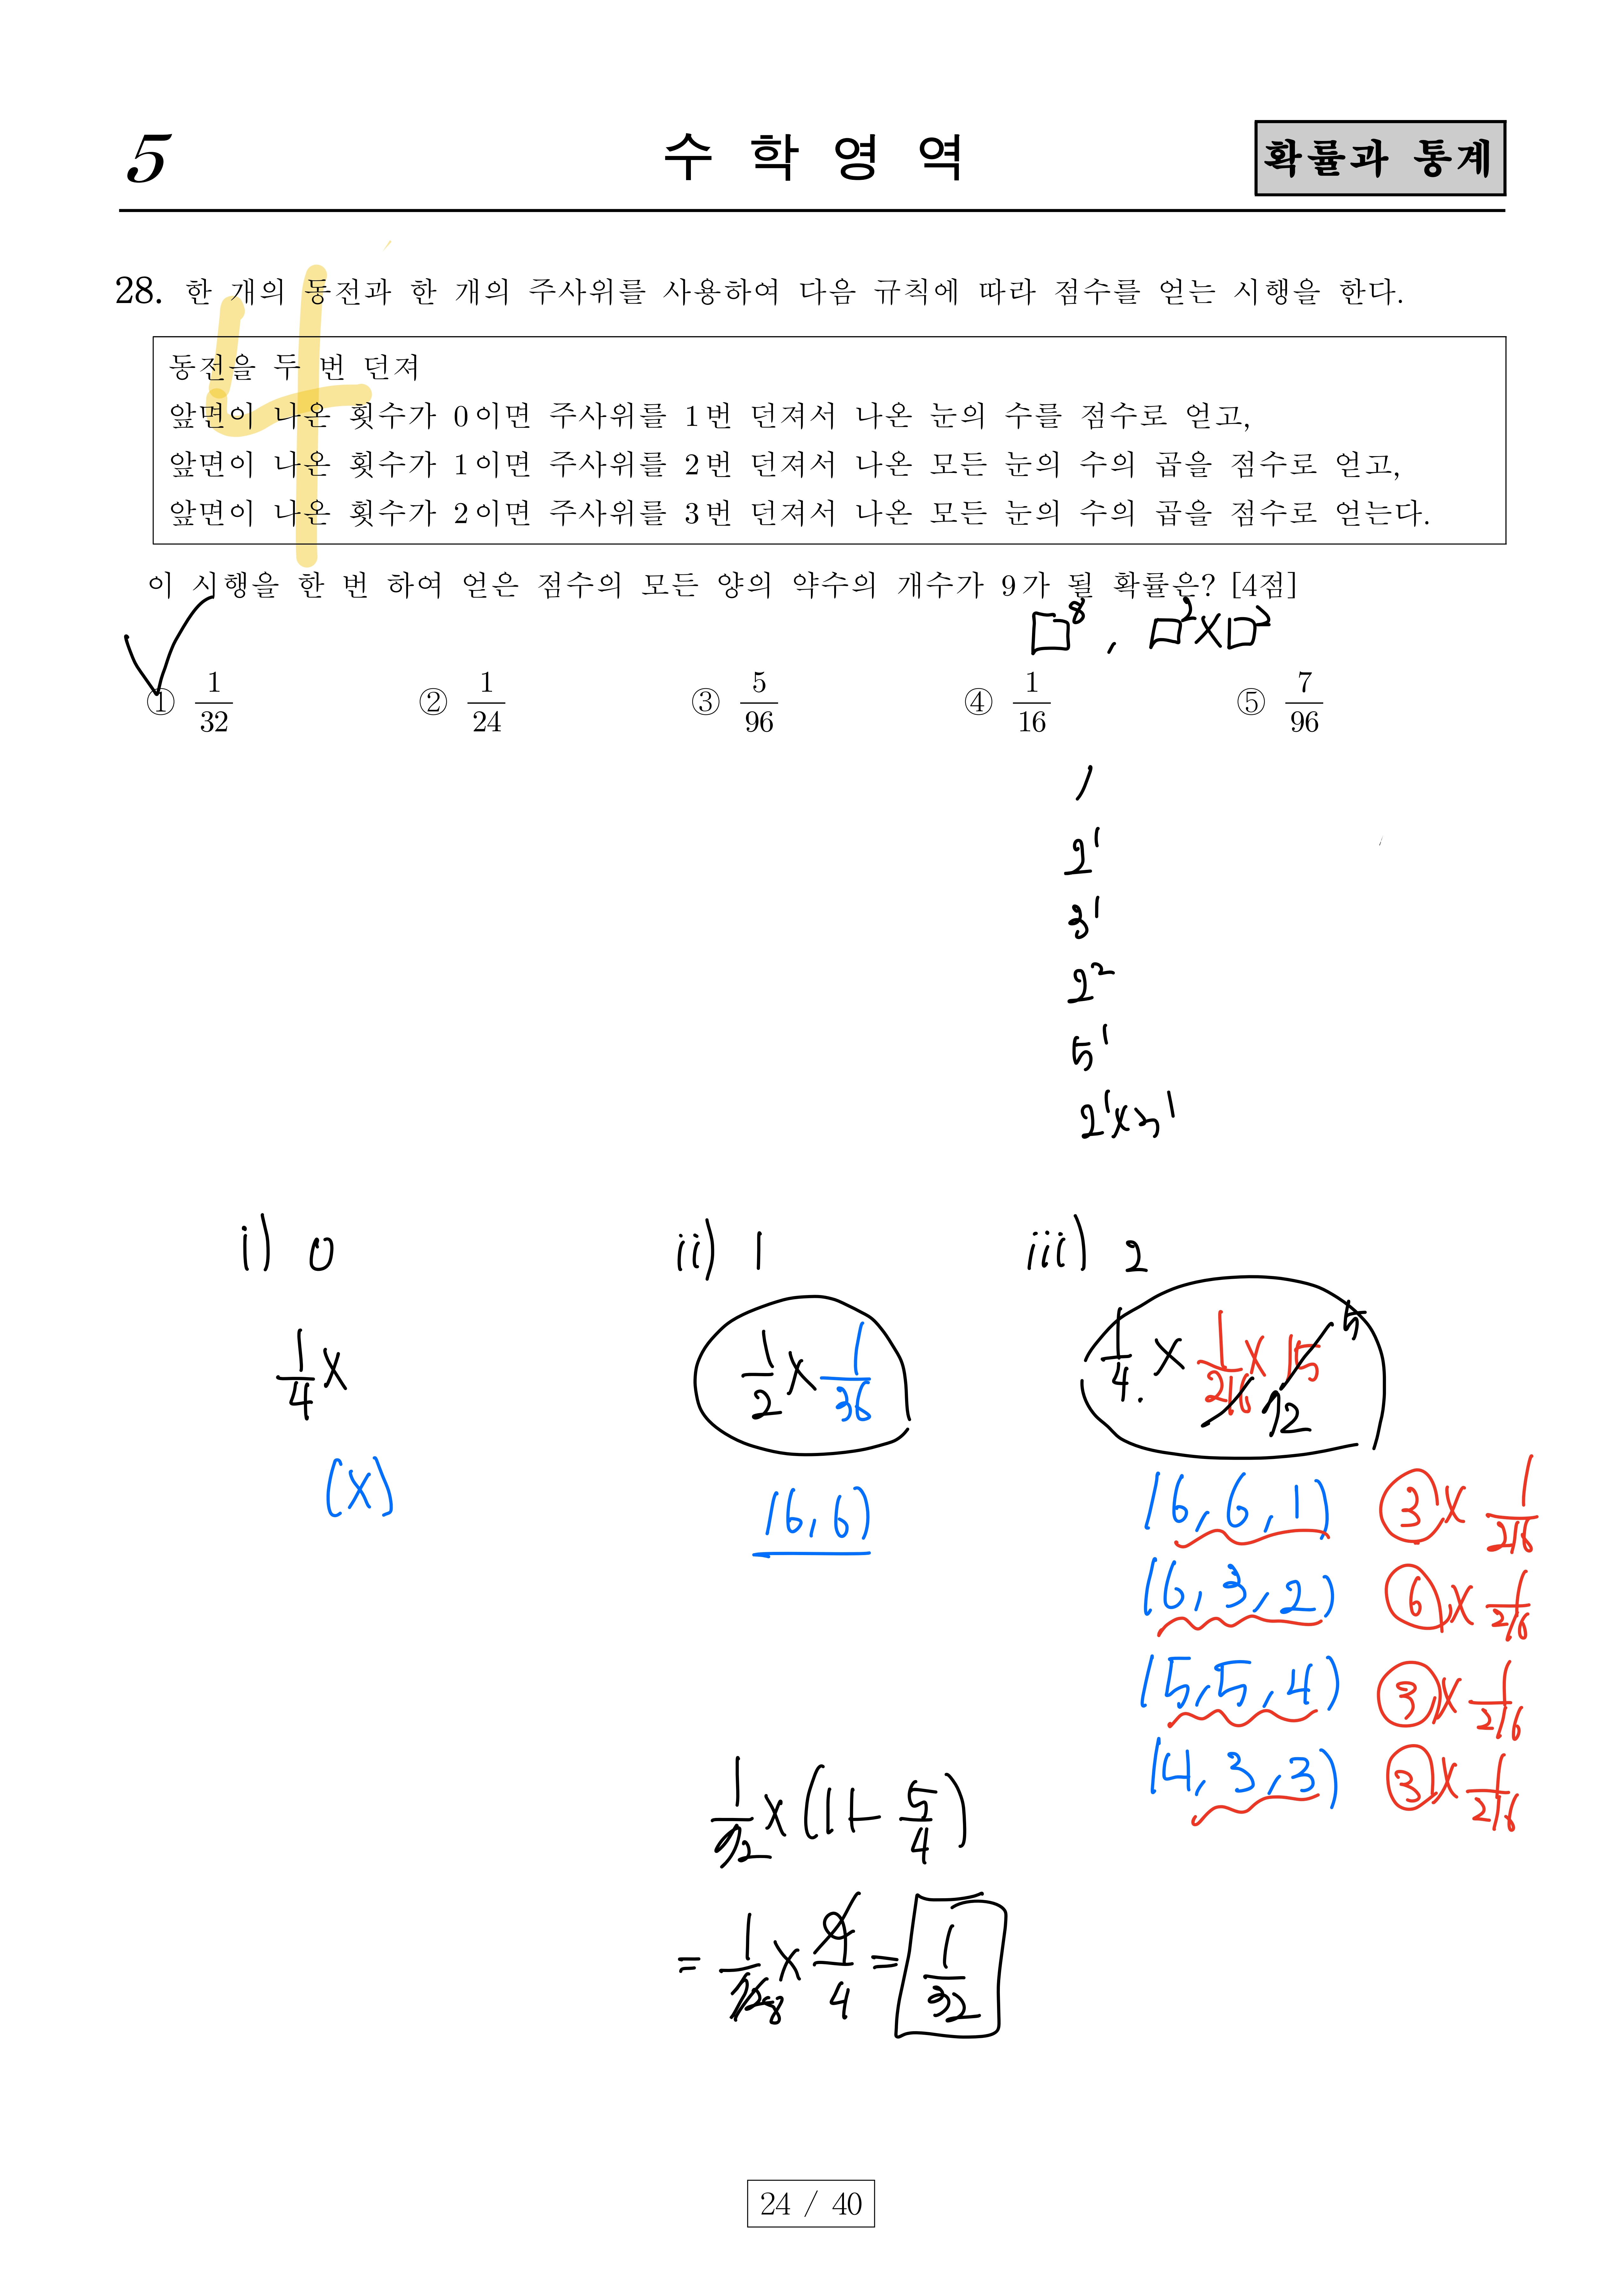 5
수 학 영 역
확률과 통계
28. 한 개의 동전과 한 개의 주사위를 사용하여 다음 규칙에 따라 점수를 얻는 시행을 한다.
동전을 두 번 던져
앞면이 나온 횟수가 0이면 주사위를 1번 던져서 나온 눈의 수를 점수로 얻고,
앞면이 나온 횟수가 1이면 주사위를 2번 던져서 나온 모든 눈의 수의 곱을 점수로 얻고,
앞면이 나온 횟수가 2이면 주사위를 3번 던져서 나온 모든 눈의 수의 곱을 점수로 얻는다.
4
이 시행을 한 번 하여 얻은 점수의 모든 양의 약수의 개수가 9가 될 확률은? [4점]
□^8 , □^2×□^2
① 1/32 ② 1/24 ③ 5/96 ④ 1/16 ⑤ 7/96
1
2^1
3^1
2^2
5^1
2^1×3^1
i) 0 ii) 1 iii) 2
1/4 × 1/2 × 1/36 1/4 × 1/216 × 15 5 72
(×) (6, 6) (6, 6, 1) ③ × 1/216
(6, 3, 2) ⑥ × 1/216
(5, 5, 4) ③ × 1/216
(4, 3, 3) ③ × 1/216
1/72 × (1+ 5/4)
= 1/72 8 × 9/4 = 1/32
24 / 40